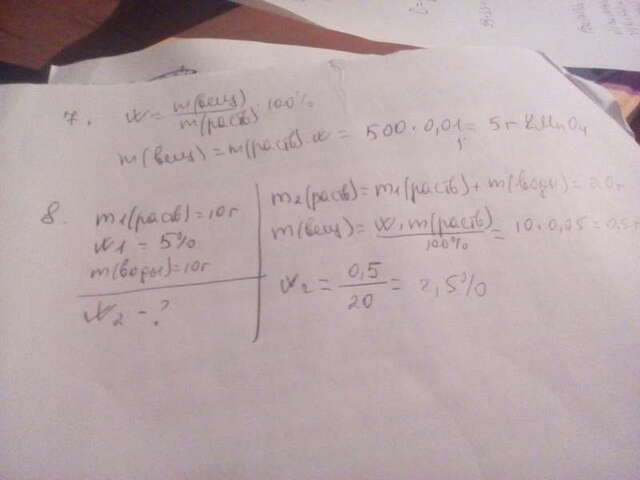 7. w = m(вещ)/m(раств) · 100%
m(вещ) = m(раств) · w = 500 · 0,01 = 5 г KMnO4
8. m1(раств) = 10 г
w1 = 5%
m(воды) = 10 г
w2 - ?
m2(раств) = m1(раств) + m(воды) = 20 г
m(вещ) = w · m(раств)/100% = 10 · 0,05 = 0,5 г
w2 = 0,5/20 = 2,5%